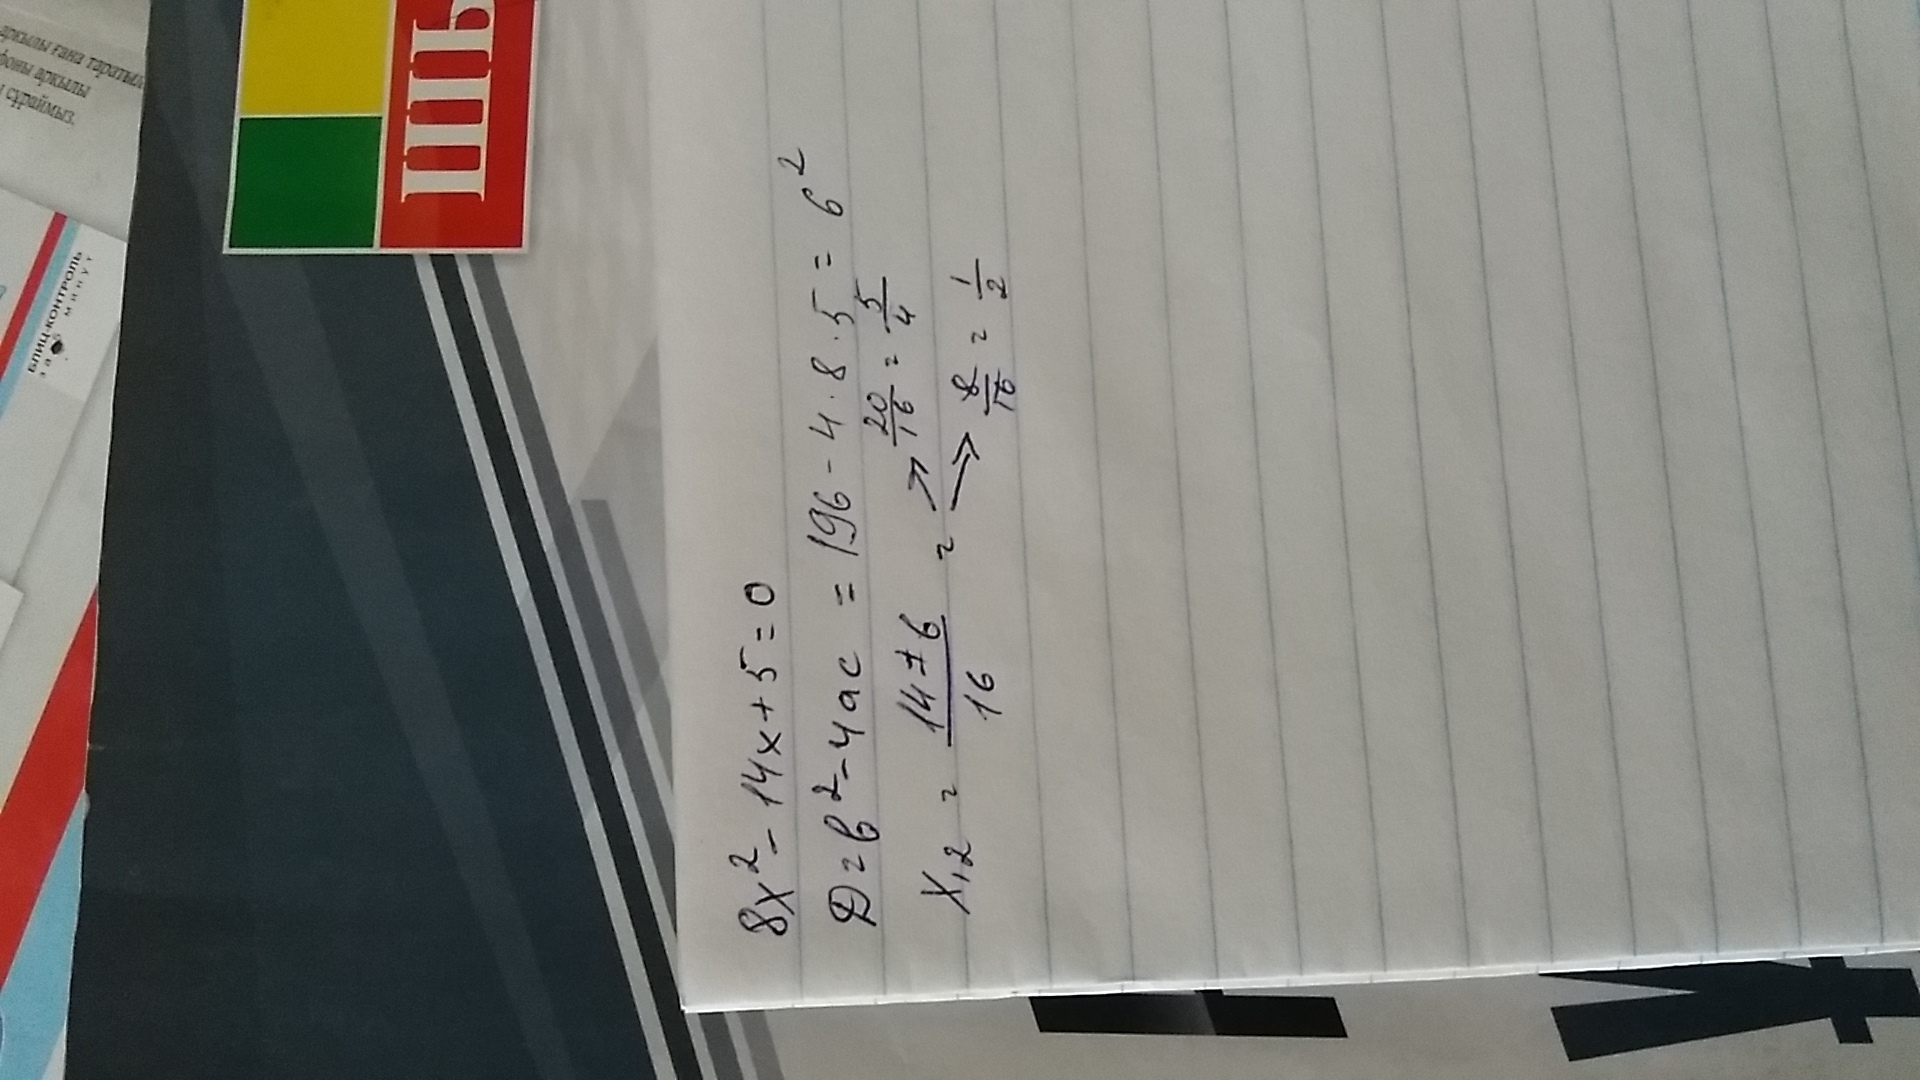 аркылы ғана таратыл
фоны аркылы
сұраймыз.
БЛИЦ-КОНТРОЛЬ
за 5 минут
ШЬ
8x² - 14x + 5 = 0
D = b² - 4ac = 196 - 4 · 8 · 5 = 6²
x₁,₂ = (14 ± 6)/16 = ↗ 20/16 = 5/4
→ 8/16 = 1/2